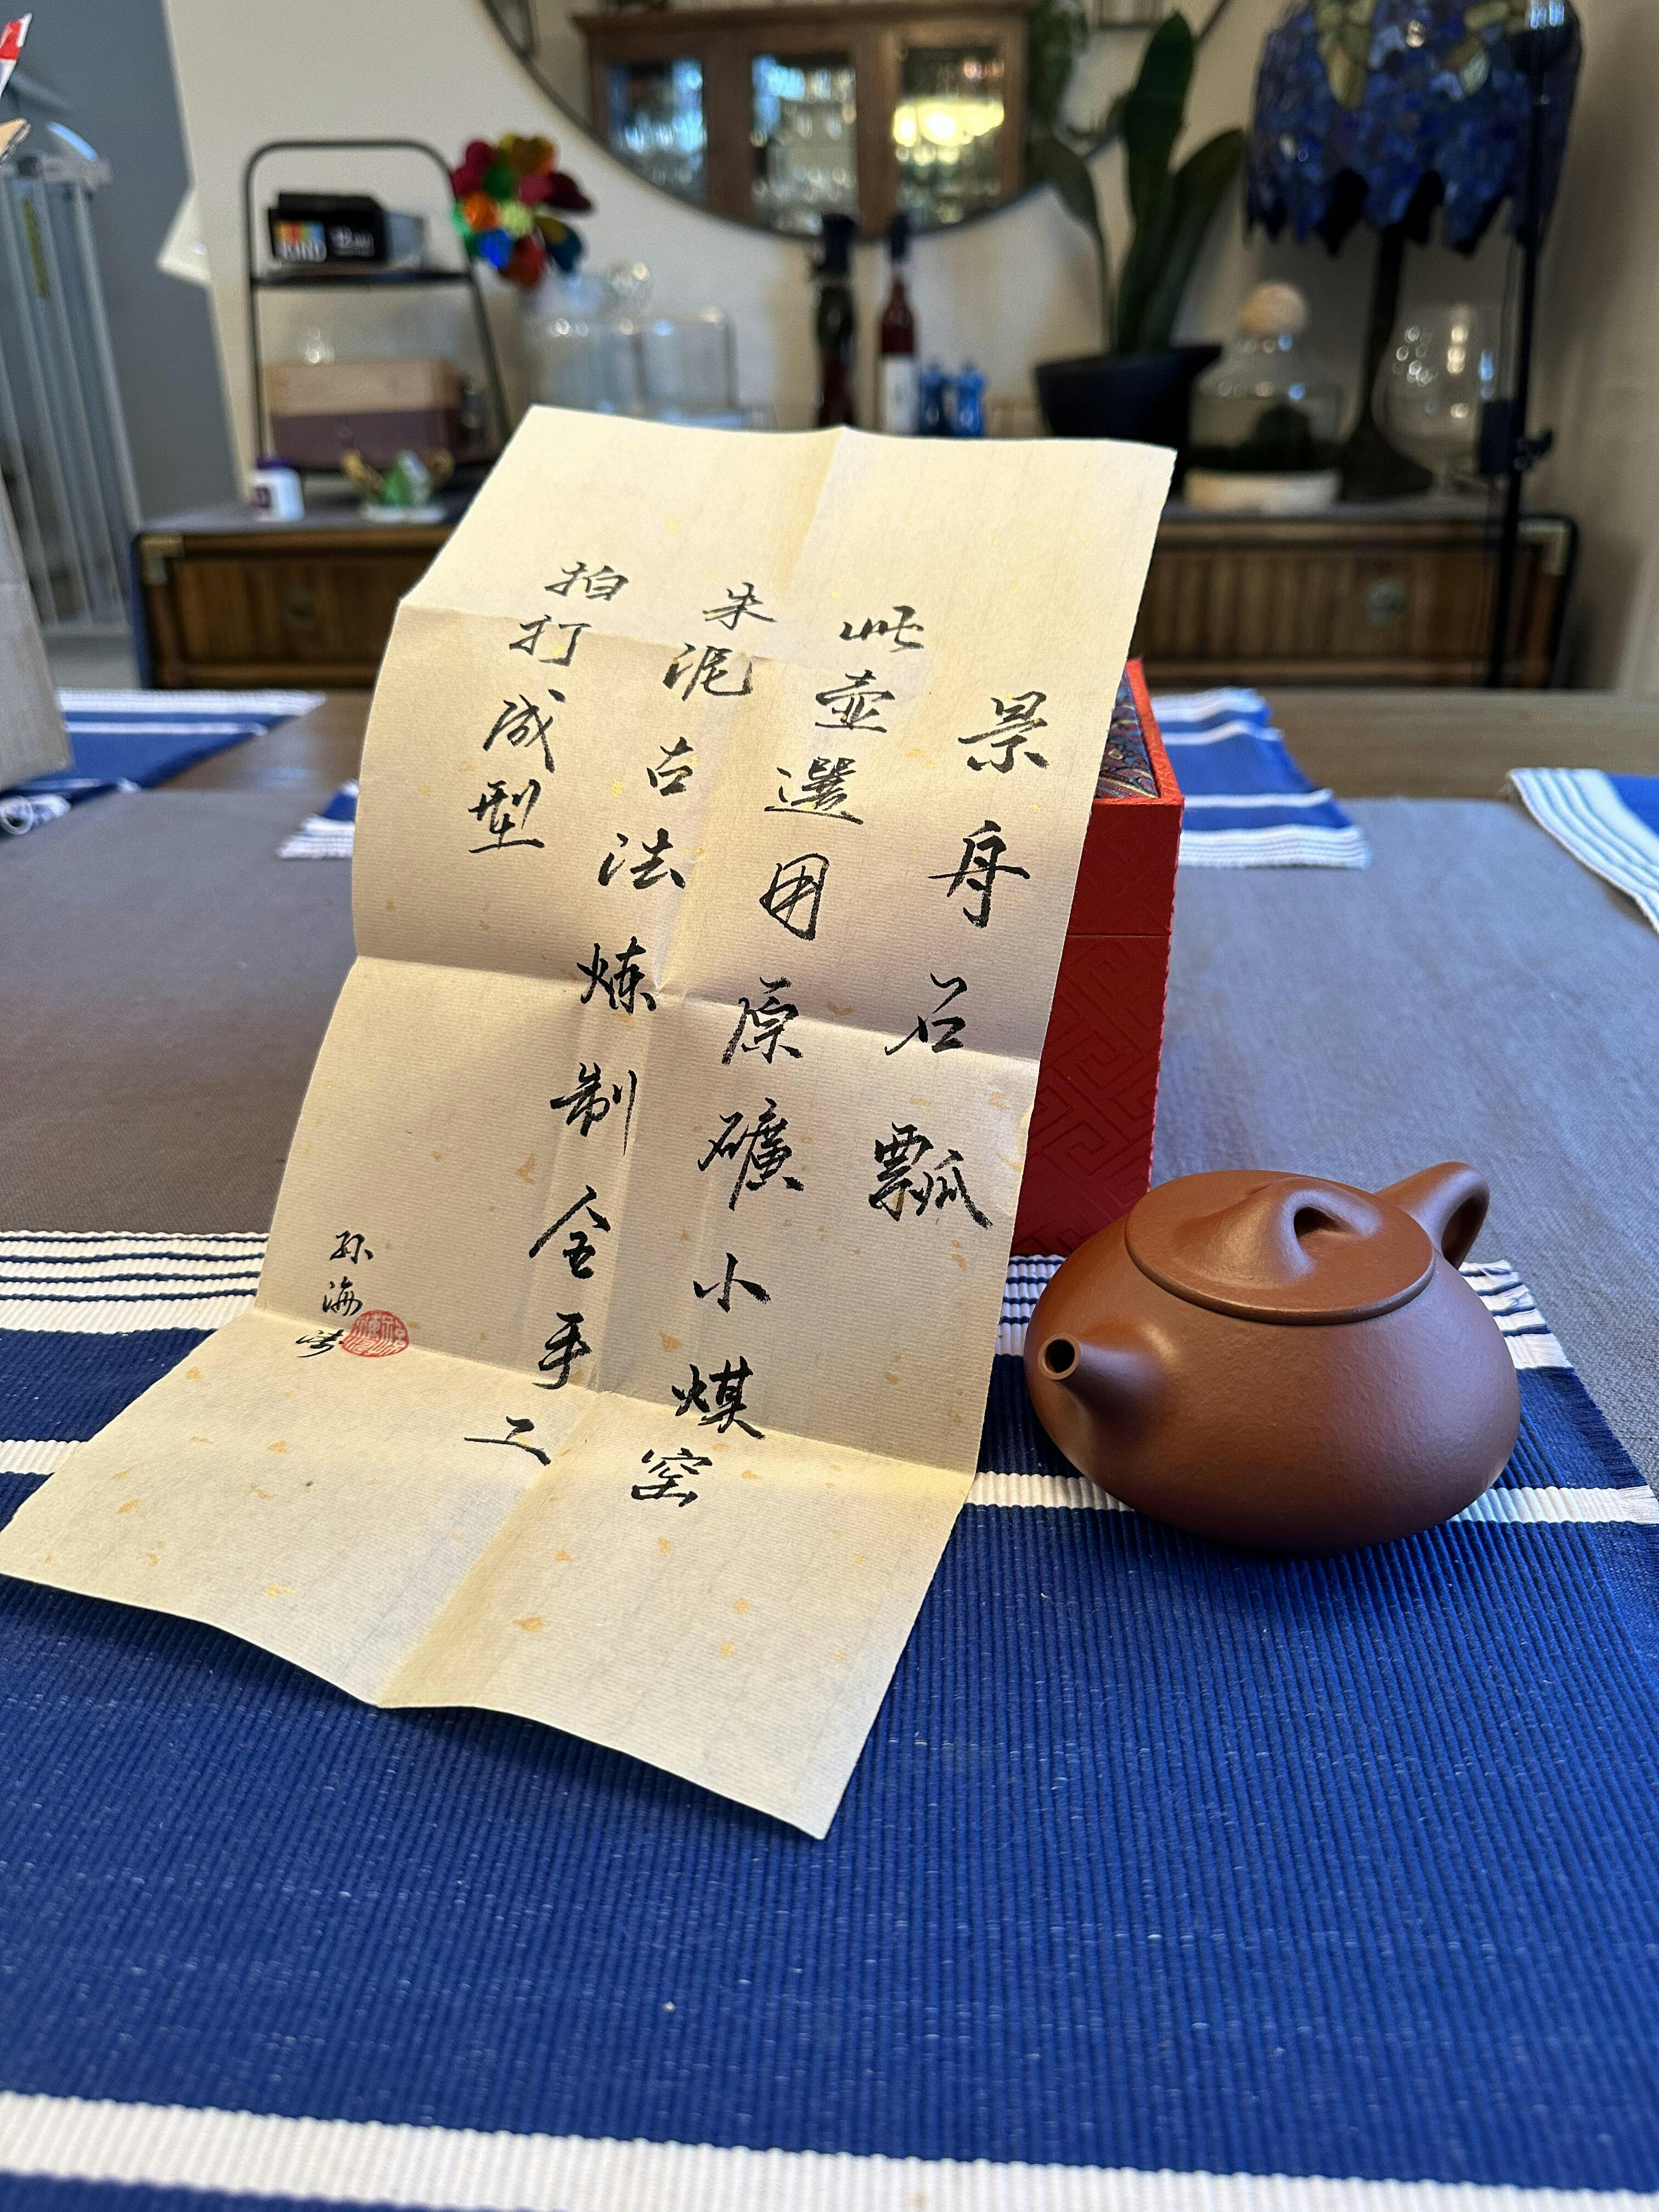 景舟石瓢
此壺選用原礦小煤窑
朱泥古法炼制全手工
拍打成型
孙海涛
KIND